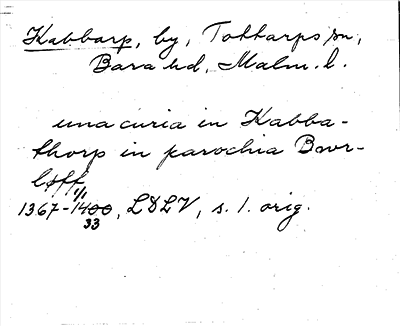 Kabbarp, by, Tottarps sn,
Bara hd, Malm. l.
una curia in Kabba-
thorp in parochia Bovr-
løff
1/1
1367-1400, LDLV, s. 1. orig.
33